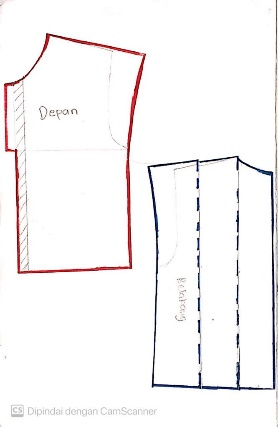 Depan
Belakang
CS Dipindai dengan CamScanner